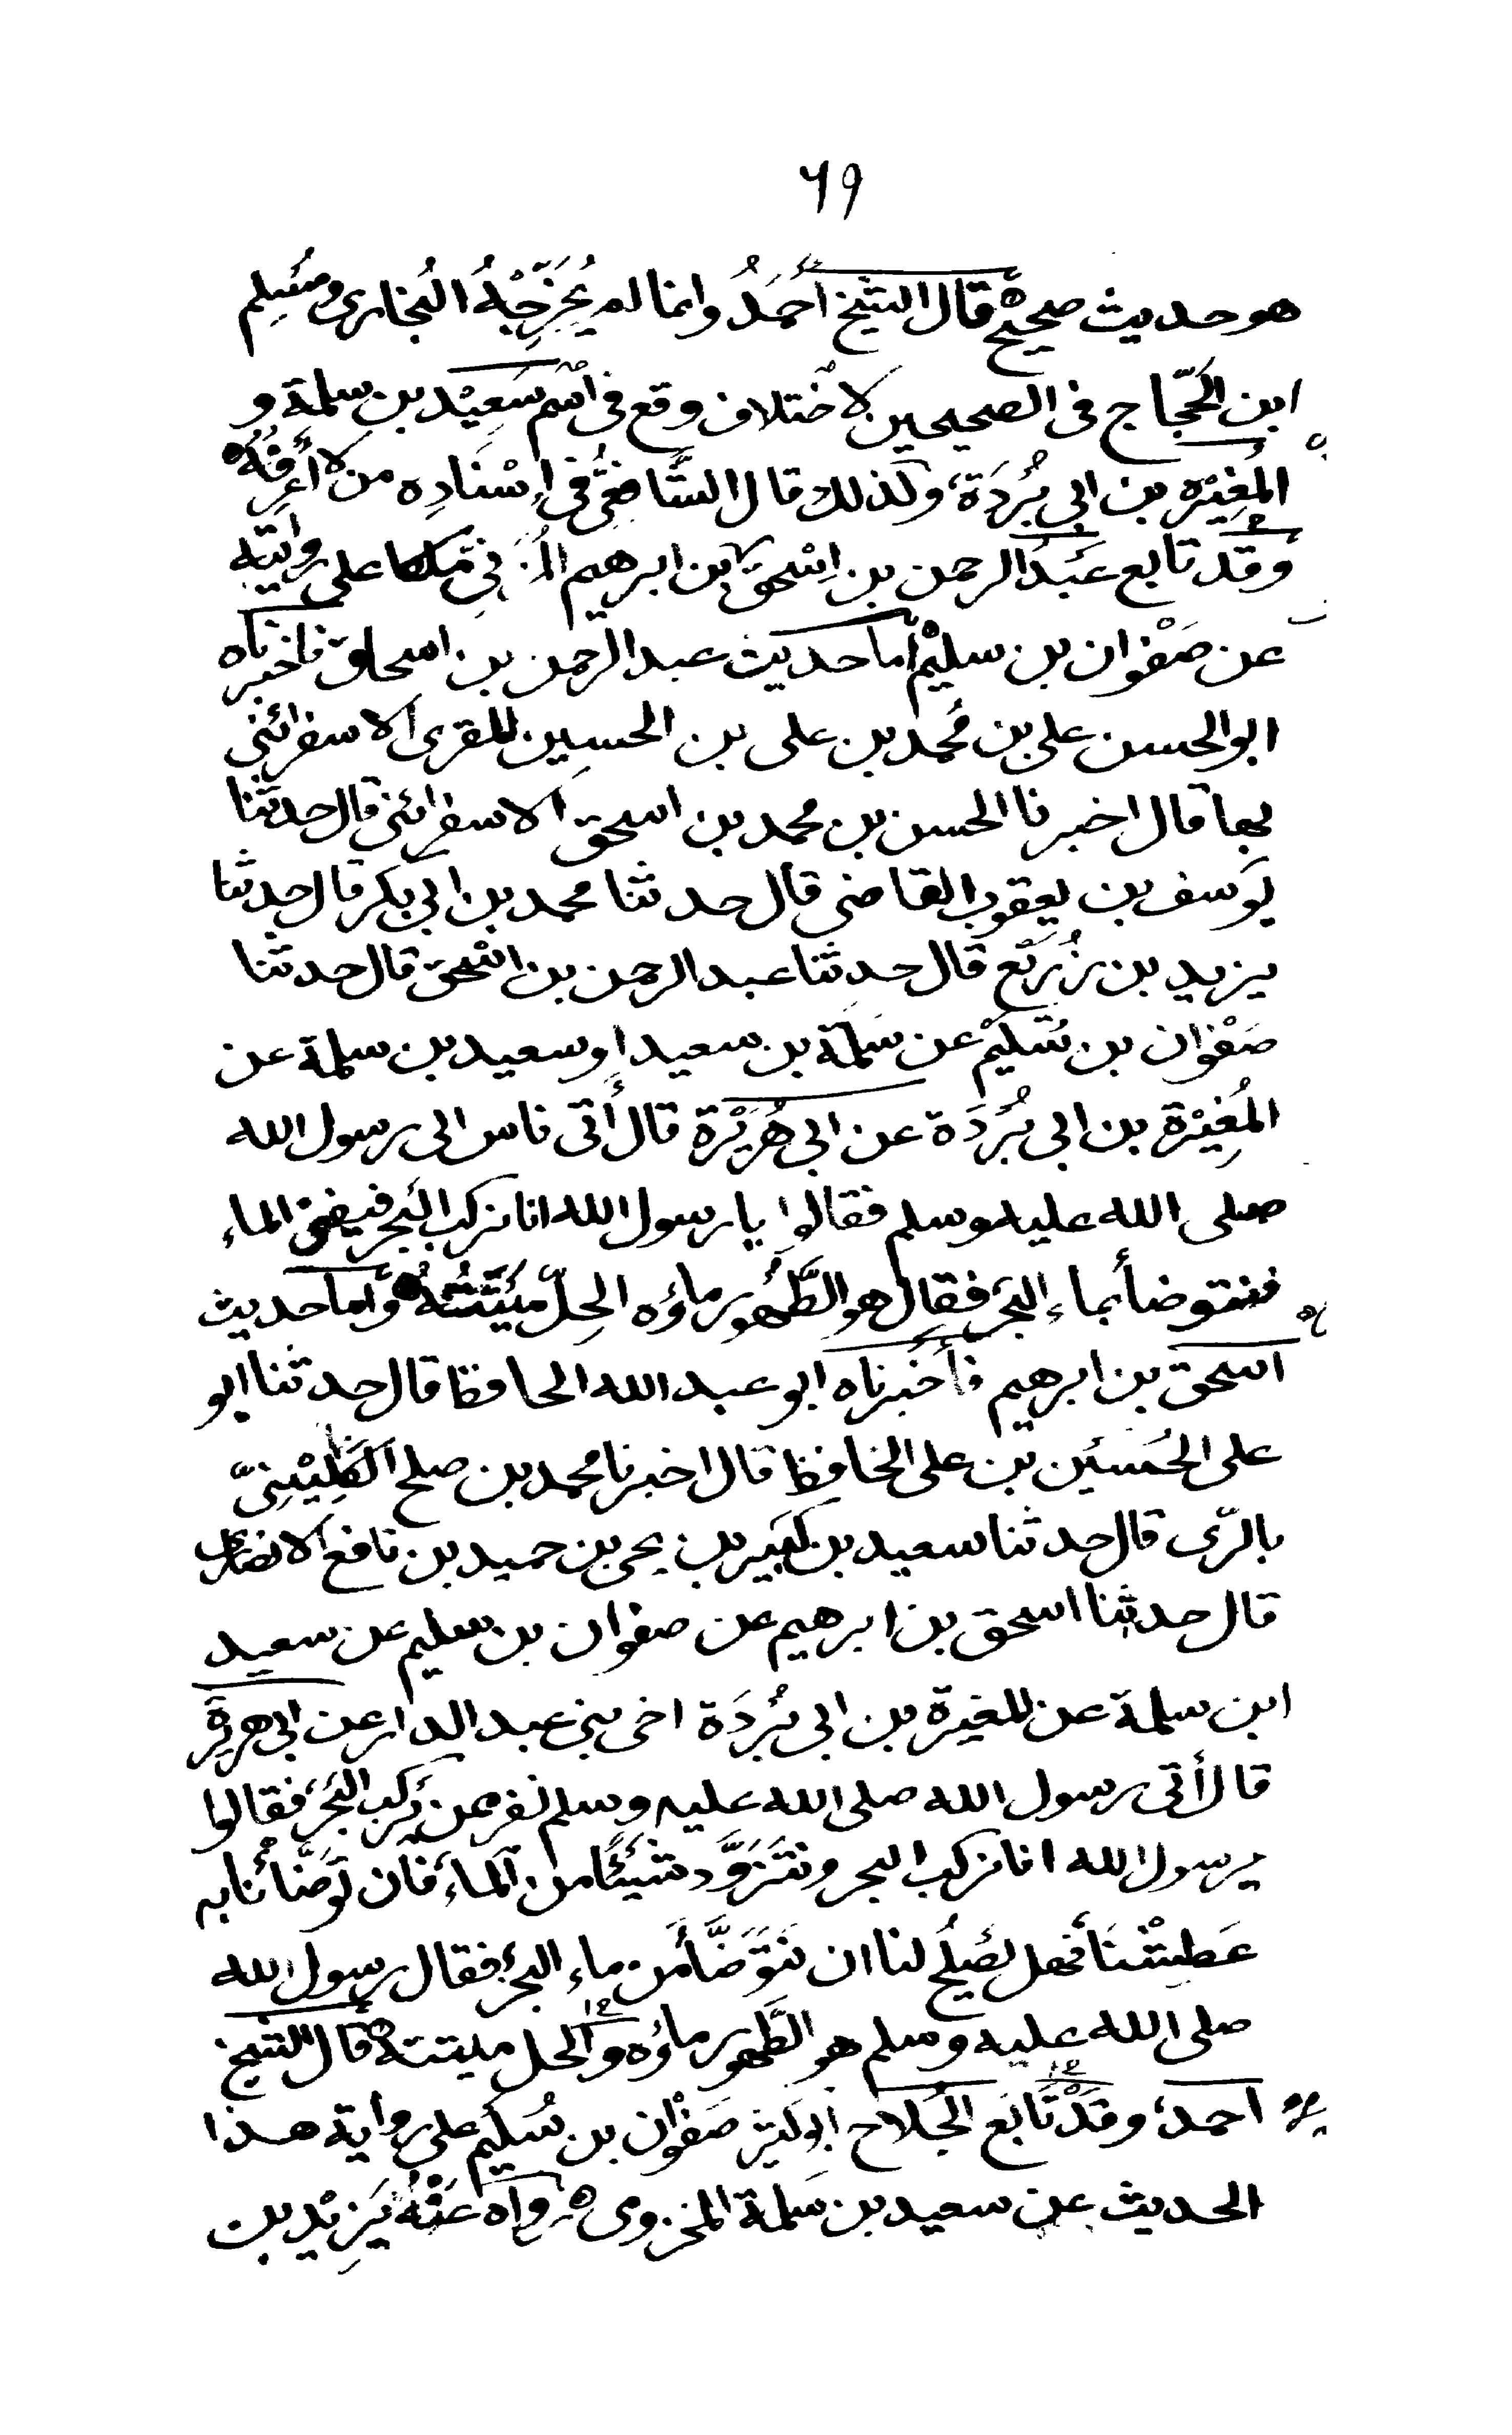 ٦٩
هو حديث صحيح قال الشيخ أحمدُ وانما لم يُخَرِّجْهُ البُخارى ومُسِلم
ابن الحَجّاج فى الصحيحين لاختلاف وقع فى اسْم سَعِيْد بن سلمة و
المُغِيْرة بن ابى بُرْدَة، وكذلك قال الشَّافِعِىُّ فى اِسْنَادِه من لا أَعرِفُهُ
وقَدْ تابع عَبْدُ الرحمن بن اِسْحق بن ابرهيم مَالكا على روايته
عن صَفْوان بن سليْم أما حديث عبد الرحمن بن اسحاق فاخبرناه
ابو الحسن على بن مُحمد بن على بن الحسين المقرى الاسفرائنى
بها قال اخبرنا الحسن بن محمد بن اسحق الاسفرائنى قال حدثنا
يوسف بن يعقوب القاضى قال حدثنا محمد بن ابى بكر قال حدثنا
يزيد بن زُرَيْع قال حدثنا عبد الرحمن بن اسْحق قال حدثنا
صَفْوان بن سُلَيْم عن سَلَمة بن سعيد او سعيد بن سلمة عن
المُغِيْرة بن ابى بُرْدَة عن ابى هُرَيْرة قال أتى ناس الى رسول الله
صلى الله عليه وسلم فقالوا يا رسول الله انا نركب البَحر فيفنى الماء
فنتوضأ بماء البَحر فقال هو الطَّهُور ماؤه الحِلّ مَيْتَتُهُ وأما حديث
اسحق بن ابرهيم فأَخْبَرناه ابو عبد الله الحافظ قال حدثنا ابو
على الحُسَيْن بن على الحافظ قال اخبرنا محمد بن صلح الكِلِيْنِىّ
بالرّى قال حدثنا سعيد بن كثير بن يحى بن حميد بن نافع الانصارى
قال حدثنا اسحق بن ابرهيم عن صفوان بن سليم عن سعيد
ابن سلمة عن المغيرة بن ابى بُرْدَة اخى بنى عبد الدار عن ابى هريرة
قال أتى رسول الله صلى الله عليه وسلم نفر ممن يَركب البَحْر، فقالوا
يرسول الله انا نركب البحر ونَتَزَوَّد شَيْئًا من الماء، فان تَوَضَّأْنا به
عَطِشْنَا فهل يَصْلُح لنا ان نَتَوَضَّأَ من ماء البحر فقال رسول الله
صلى الله عليه وسلم هو الطَّهور ماؤه والحل ميتته قال الشيخ
احمد، وقَدْ تَابَع الجُلاح ابو كثير صَفْوان بن سُلَيْم على رواية هذا
الحديث عن سعيد بن سَلمة المخزومى رواه عَنْهُ يَزِيْد بن